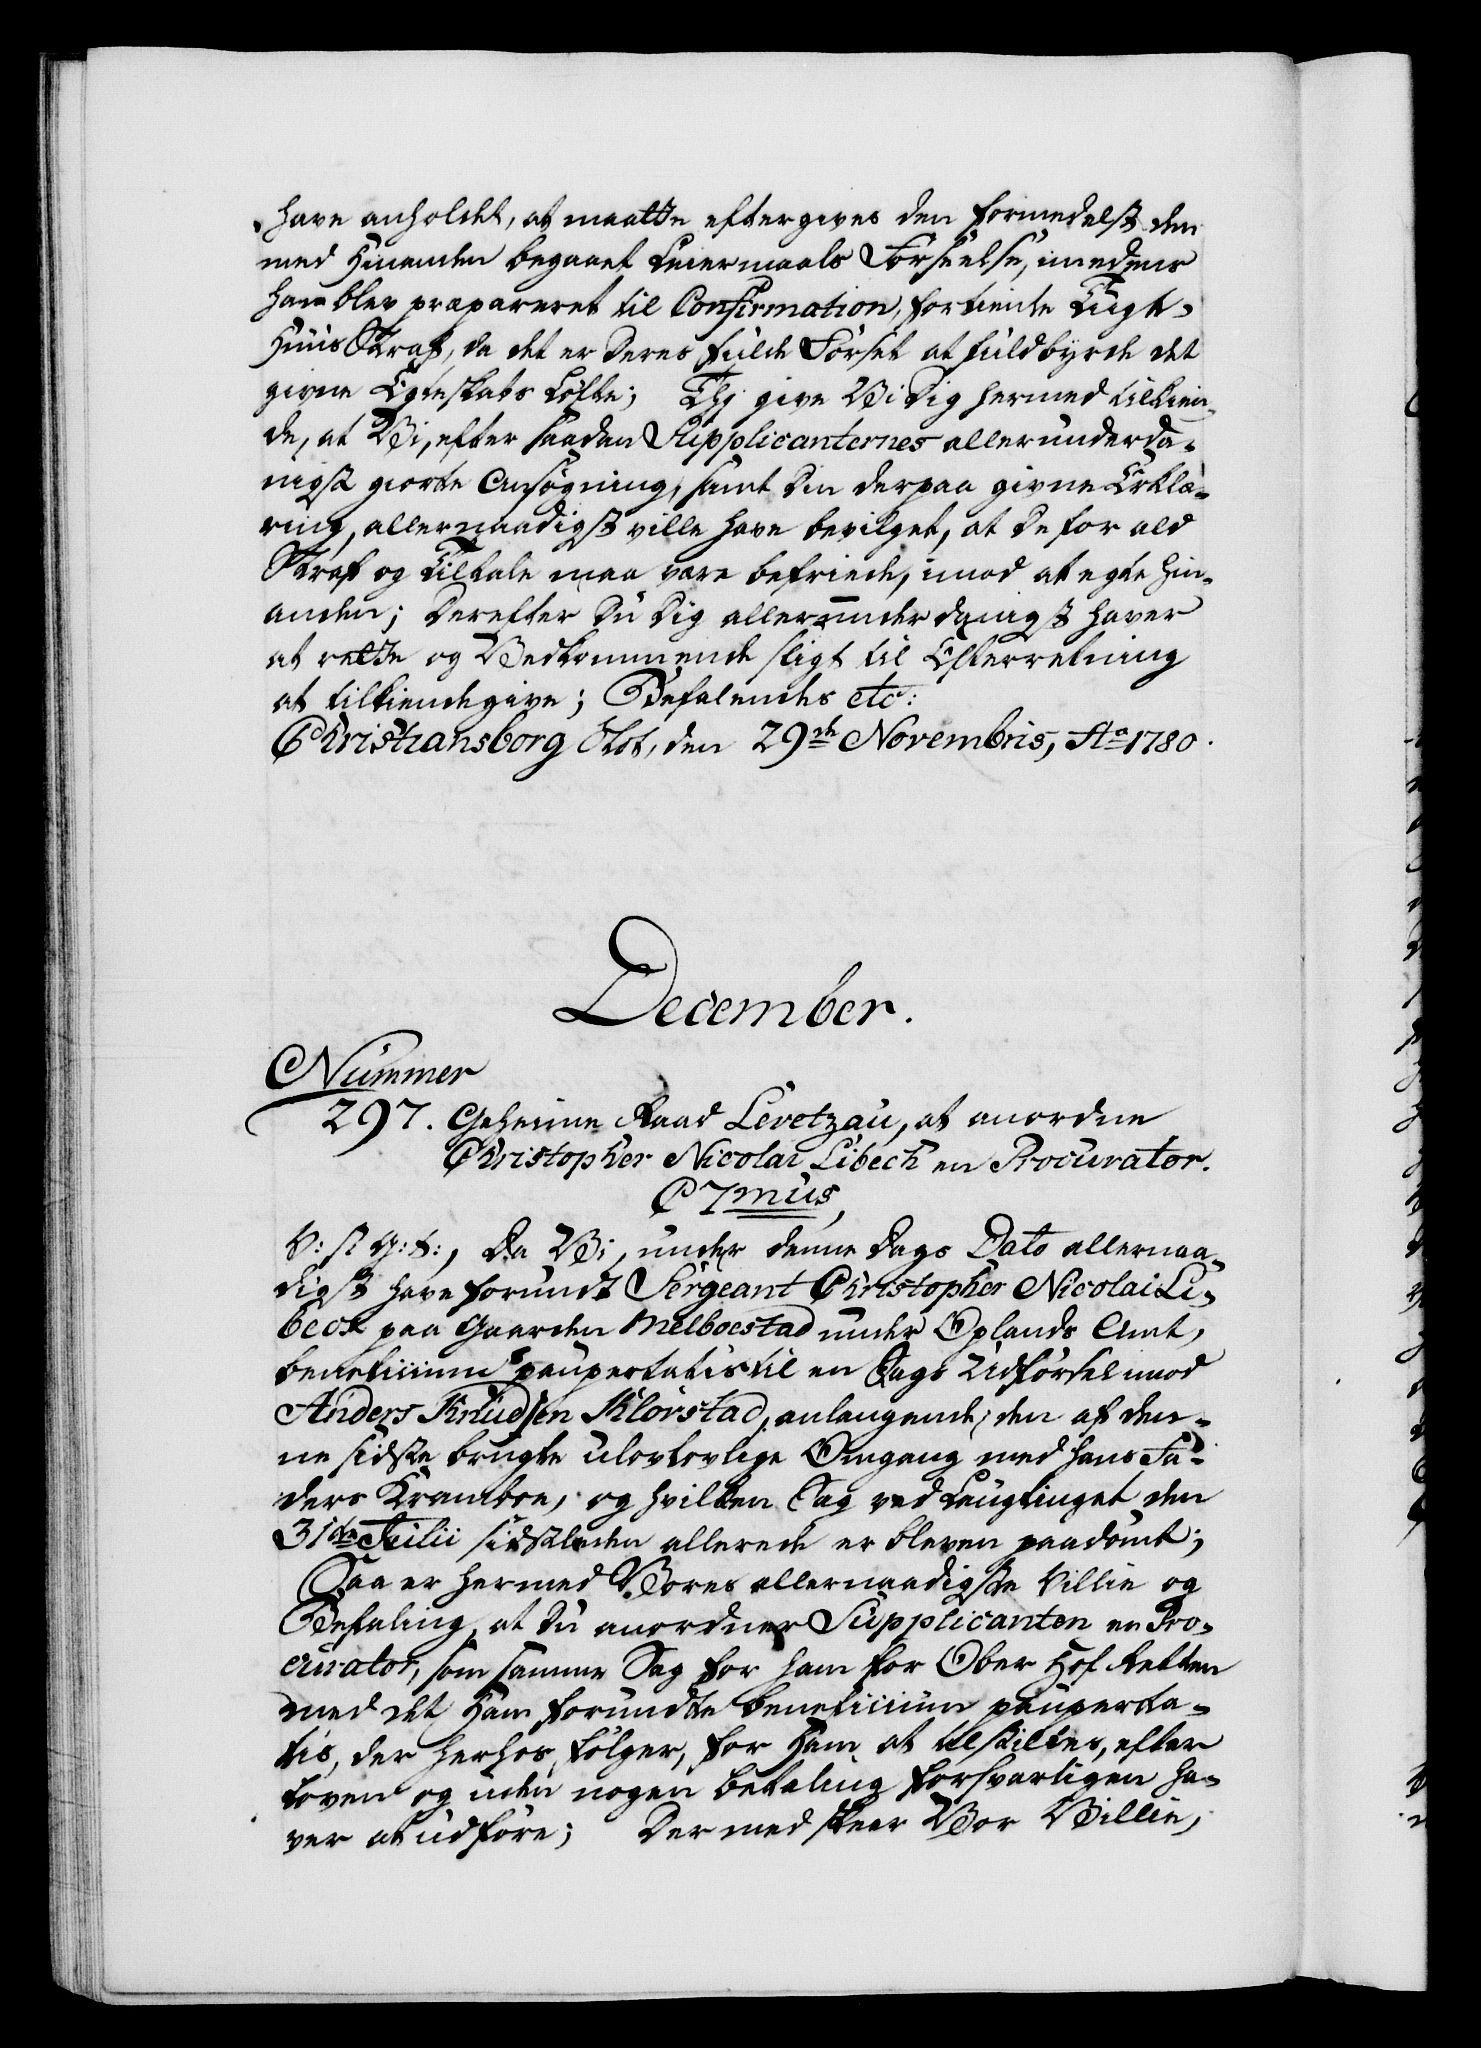 have anholdet, at maatte eftergives den formedelst den
med Hinanden begaaet Leiermaals Forseelse, imedens
han blev præpareret til Confirmation, fortiente Tugt-
Huus Straf, da det er Deres fulde Forset at fuldbyrde det
givne Egteskabs Løfte; Thj give Vi Dig hermed tilkien-
de, at Vi, efter saadan Supplicanternes allerunderda-
nigst giorte Ansøgning, samt Din derpaa givne Erklæ-
ring, allernaadigst ville have bevilget, at De for ald
Straf og Tiltale maa være befriede, imod at egte hin-
anden; Derefter Du Dig allerunderdanigst haver
at rette og Vedkommende sligt til Efterretning
at tilkiendegive; Befalendes etc:
Christiansborg Slot, den 29de Novembris, Ao 1780.
December.
Nummer
297. Geheime Raad Levetzau, at anordne
Christopher Nicolai Libech en Procurator.
C7mus,
V: s: G: t:, Da Vi, under denne Dags Dato allernaa-
digst have forundt Sergeant Christopher Nicolai Li-
beck paa Gaarden Melboestad under Oplands Amt,
beneficium paupertatis til en Sags Udførsel imod
Anders Knudsen Klørstad, anlangende, den af den-
ne sidste brugte ulovlovlige Omgang med hans Fa-
ders Kramboe, og hvilken Sag ved Laugtinget den
31de Julii sidstleden allerede er bleven paadømt;
Saa er hermed Vores allernaadigste Villie og
Befaling, at Du anordner Supplicanten en Pro-
curator, som samme Sag for ham for Ober Hof Retten
med det Ham forundte beneficium pauperta-
tis, der herhos følger, for Ham at tilstilles, efter
Loven og uden nogen betaling forsvarligen ha-
ver at udføre; Dermed skeer Vor Villie,